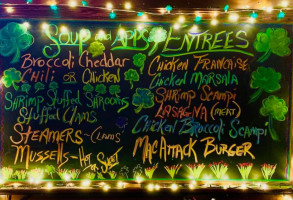 Soup and Apps
Broccoli Cheddar
Chili or Chicken
Shrimp Stuffed Shrooms
Stuffed Clams
Steamers - Clams
Mussels - Hot or Sweet
Entrees
Chicken Francaise
Chicken Marsala
Shrimp Scampi
Lasagna (meat)
Chicken Broccoli Scampi
Mac Attack Burger